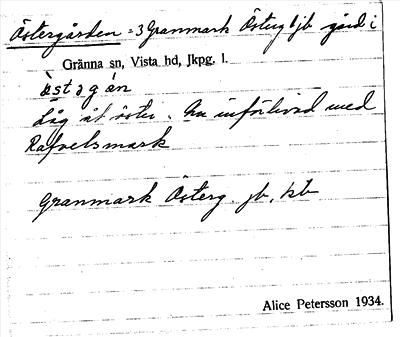 Östergården = 3 Granmark Österg jb gård i
Gränna sn, Vista hd, Jkpg. l.
Låg åt öster. Nu införlivad med
Rafvelsmark
Granmark Österg. jb, kb
Alice Petersson 1934.